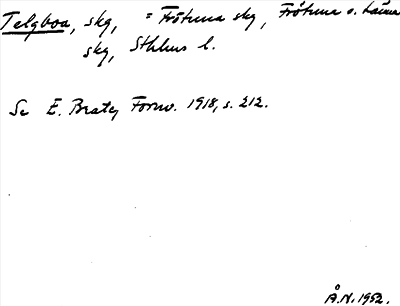 Telgboa, skg, = Frötuna skg, Frötuna o. Länna
skg, Sthlms l.
Se E. Brate, Fornv. 1918, s. 212.
Å.N. 1952.